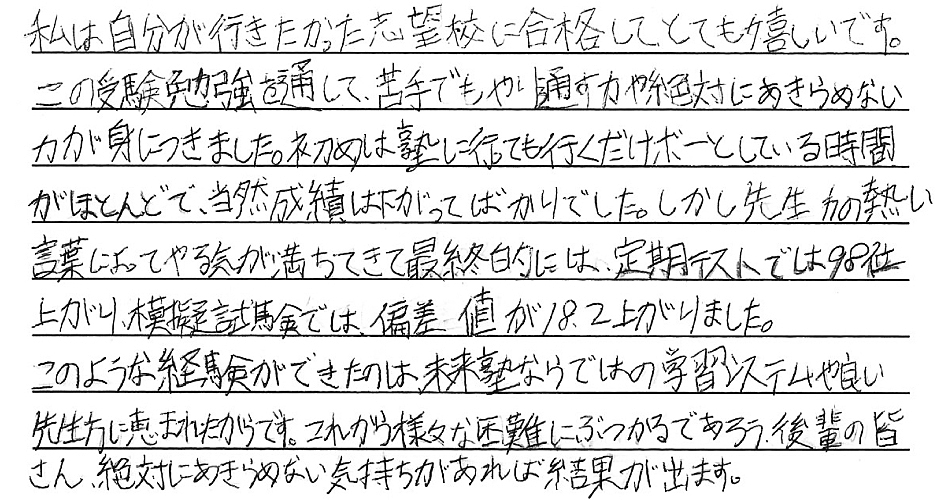 私は自分が行きたかった志望校に合格して、とても嬉しいです。
この受験勉強を通して、苦手でもやり通す力や絶対にあきらめない
力が身につきました。初めは塾に行っても行くだけボーとしている時間
がほとんどで、当然成績は下がってばかりでした。しかし先生方の熱い
言葉によってやる気が満ちてきて最終的には、定期テストでは98位
上がり、模擬試験では、偏差値が18.2上がりました。
このような経験ができたのは、未来塾ならではの学習システムや良い
先生方に恵まれたからです。これから様々な困難にぶつかるであろう、後輩の皆
さん、絶対にあきらめない気持ちがあれば結果が出ます。